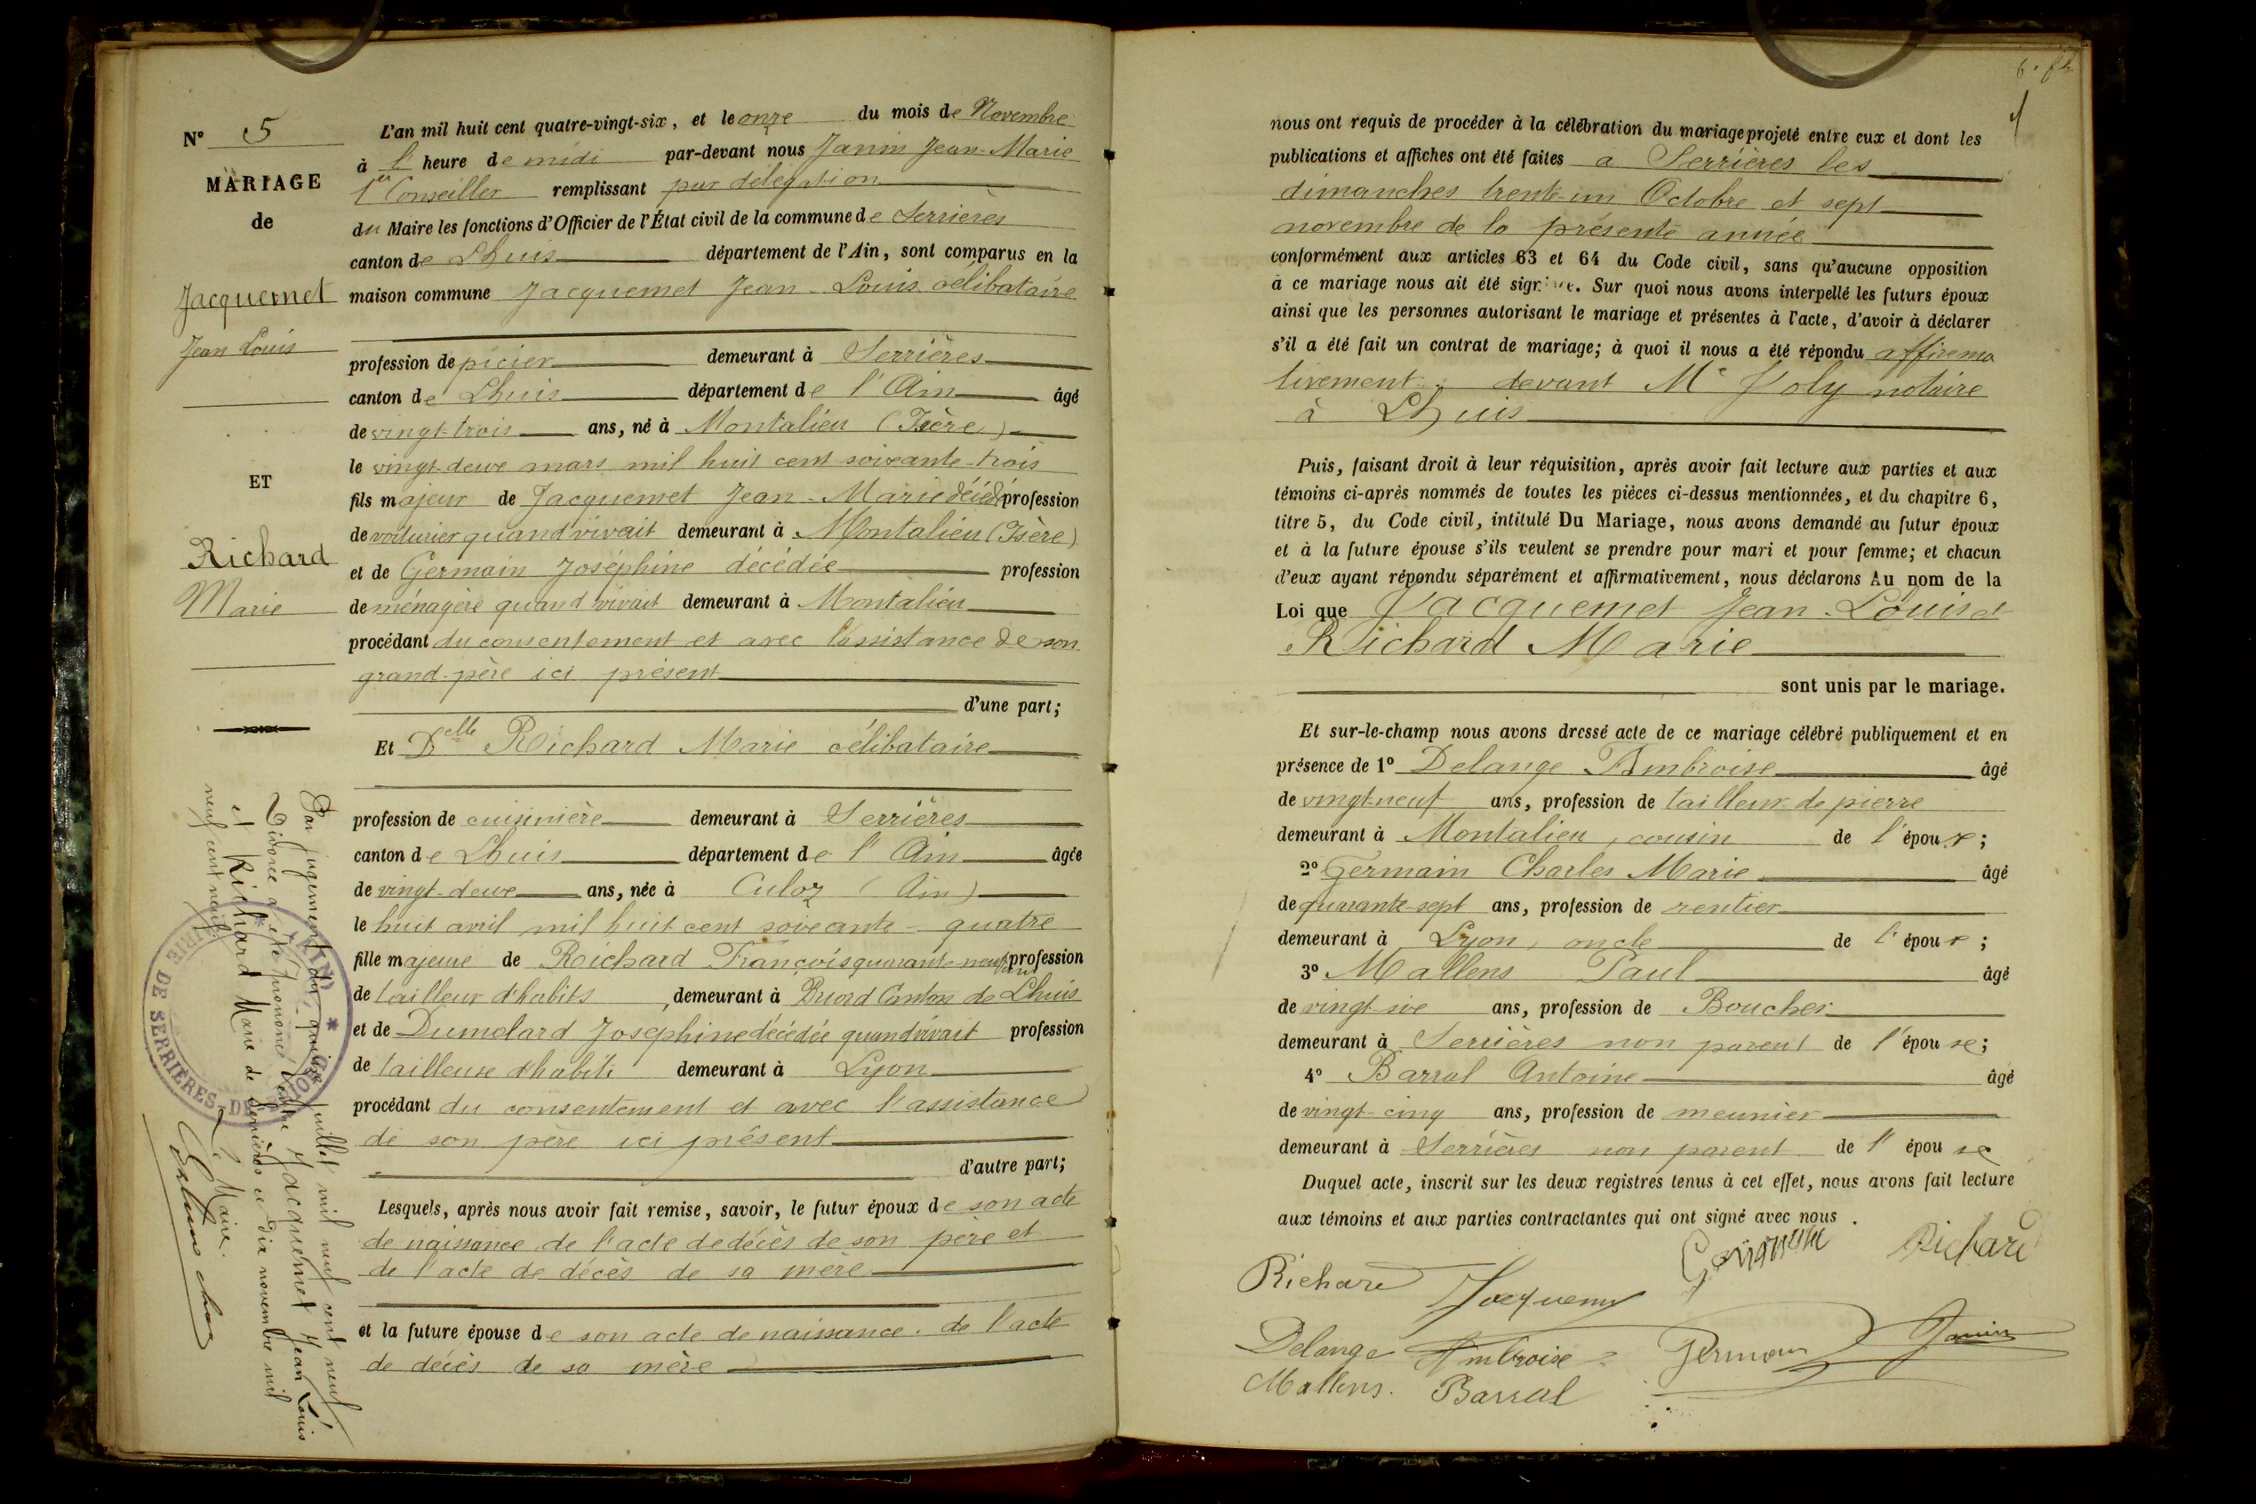 N° 5
MARIAGE
de
Jacquemet
Jean Louis
ET
Richard
Marie
L'an mil huit cent quatre-vingt-six, et le onze du mois de Novembre
à l' heure de midi par-devant nous Janin Jean-Marie
1er Conseiller remplissant par délégation
du Maire les fonctions d'Officier de l'État civil de la commune de Serrières
canton de Lhuis département de l'Ain, sont comparus en la
maison commune Jacquemet Jean-Louis célibataire
profession de picier demeurant à Serrières
canton de Lhuis département de l'Ain âgé
de vingt-trois ans, né à Montalieu (Isère)
le vingt-deux mars mil huit cent soixante-trois
fils majeur de Jacquemet Jean-Marie décédé profession
de voiturier quand vivait demeurant à Montalieu (Isère)
et de Germain Joséphine décédée profession
de ménagère quand vivait demeurant à Montalieu
procédant du consentement et avec l'assistance de son
grand-père ici présent
d'une part;
Et Delle Richard Marie célibataire
profession de cuisinière demeurant à Serrières
canton de Lhuis département de l'Ain âgée
de vingt-deux ans, née à Culoz (Ain)
le huit avril mil huit cent soixante-quatre
fille majeure de Richard François quarante-neuf ans profession
de tailleur d'habits, demeurant à Briord Canton de Lhuis
et de Dumolard Joséphine décédée quand vivait profession
de tailleuse d'habits demeurant à Lyon
procédant du consentement et avec l'assistance
de son père ici présent
d'autre part;
Lesquels, après nous avoir fait remise, savoir, le futur époux de son acte
de naissance de l'acte de décès de son père et
de l'acte de décès de sa mère
et la future épouse de son acte de naissance. de l'acte
de décès de sa mère
Par jugement du quinze juillet mil neuf cent neuf
Divorce a été prononcé entre Jacquemet Jean Louis
et Richard Marie de Serrières ce dix novembre mil
neuf cent neuf
Le Maire.
MAIRIE DE SERRIÈRES-DE-BRIORD * (AIN) *
nous ont requis de procéder à la célébration du mariage projeté entre eux et dont les
publications et affiches ont été faites a Serrières les
dimanches trente-un Octobre et sept
novembre de la présente année
conformément aux articles 63 et 64 du Code civil, sans qu'aucune opposition
à ce mariage nous ait été signifiée. Sur quoi nous avons interpellé les futurs époux
ainsi que les personnes autorisant le mariage et présentes à l'acte, d'avoir à déclarer
s'il a été fait un contrat de mariage; à quoi il nous a été répondu affirma
tivement devant Me Joly notaire
à Lhuis
Puis, faisant droit à leur réquisition, après avoir fait lecture aux parties et aux
témoins ci-après nommés de toutes les pièces ci-dessus mentionnées, et du chapitre 6,
titre 5, du Code civil, intitulé Du Mariage, nous avons demandé au futur époux
et à la future épouse s'ils veulent se prendre pour mari et pour femme; et chacun
d'eux ayant répondu séparément et affirmativement, nous déclarons Au nom de la
Loi que Jacquemet Jean-Louis et
Richard Marie
sont unis par le mariage.
Et sur-le-champ nous avons dressé acte de ce mariage célébré publiquement et en
présence de 1° Delange Ambroise âgé
de vingt-neuf ans, profession de tailleur de pierre
demeurant à Montalieu, cousin de l'époux;
2° Germain Charles Marie âgé
de quarante-sept ans, profession de rentier
demeurant à Lyon, oncle de l'époux;
3° Mallens Paul âgé
de vingt-six ans, profession de Boucher
demeurant à Serrières non parent de l'épouse;
4° Barral Antoine âgé
de vingt-cinq ans, profession de meunier
demeurant à Serrières non parent de l'épouse
Duquel acte, inscrit sur les deux registres tenus à cet effet, nous avons fait lecture
aux témoins et aux parties contractantes qui ont signé avec nous.
Richard
Richard Jacquemet
Delange Ambroise Germain Janin
Mallens. Barral